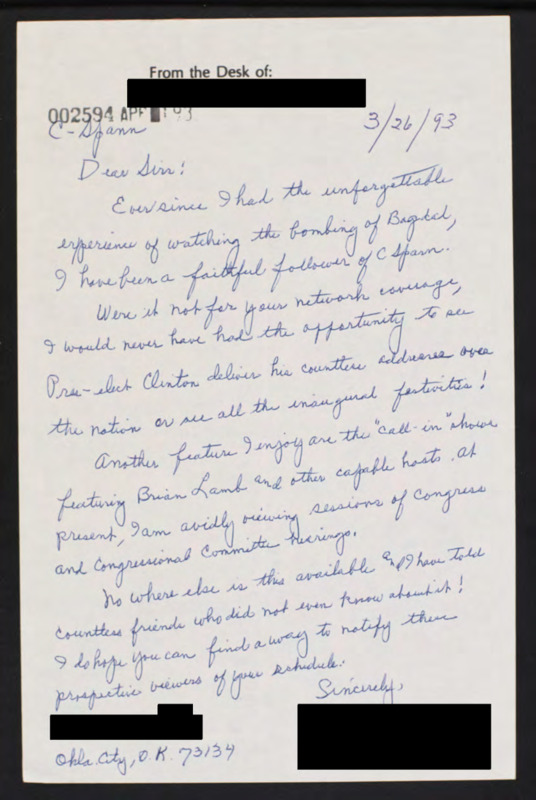 From the Desk of:
002594 APR 1 93
C-Spann
3/26/93
Dear Sirs:
Ever since I had the unforgettable
experience of watching the bombing of Bagdad,
I have been a faithful follower of C Spann.
Were it not for your network coverage,
I would never have had the opportunity to see
Pres-elect Clinton deliver his countless addresses over
the nation or see all the inaugural festivities!
Another feature I enjoy are the "call-in" shows
featuring Brian Lamb and other capable hosts. At
present, I am avidly viewing sessions of Congress
and Congressional Committee hearings.
No where else is this available and I have told
countless friends who did not even know about it!
I do hope you can find a way to notify these
prospective viewers of your schedule.
Sincerely,
Okla. City, O.K. 73134